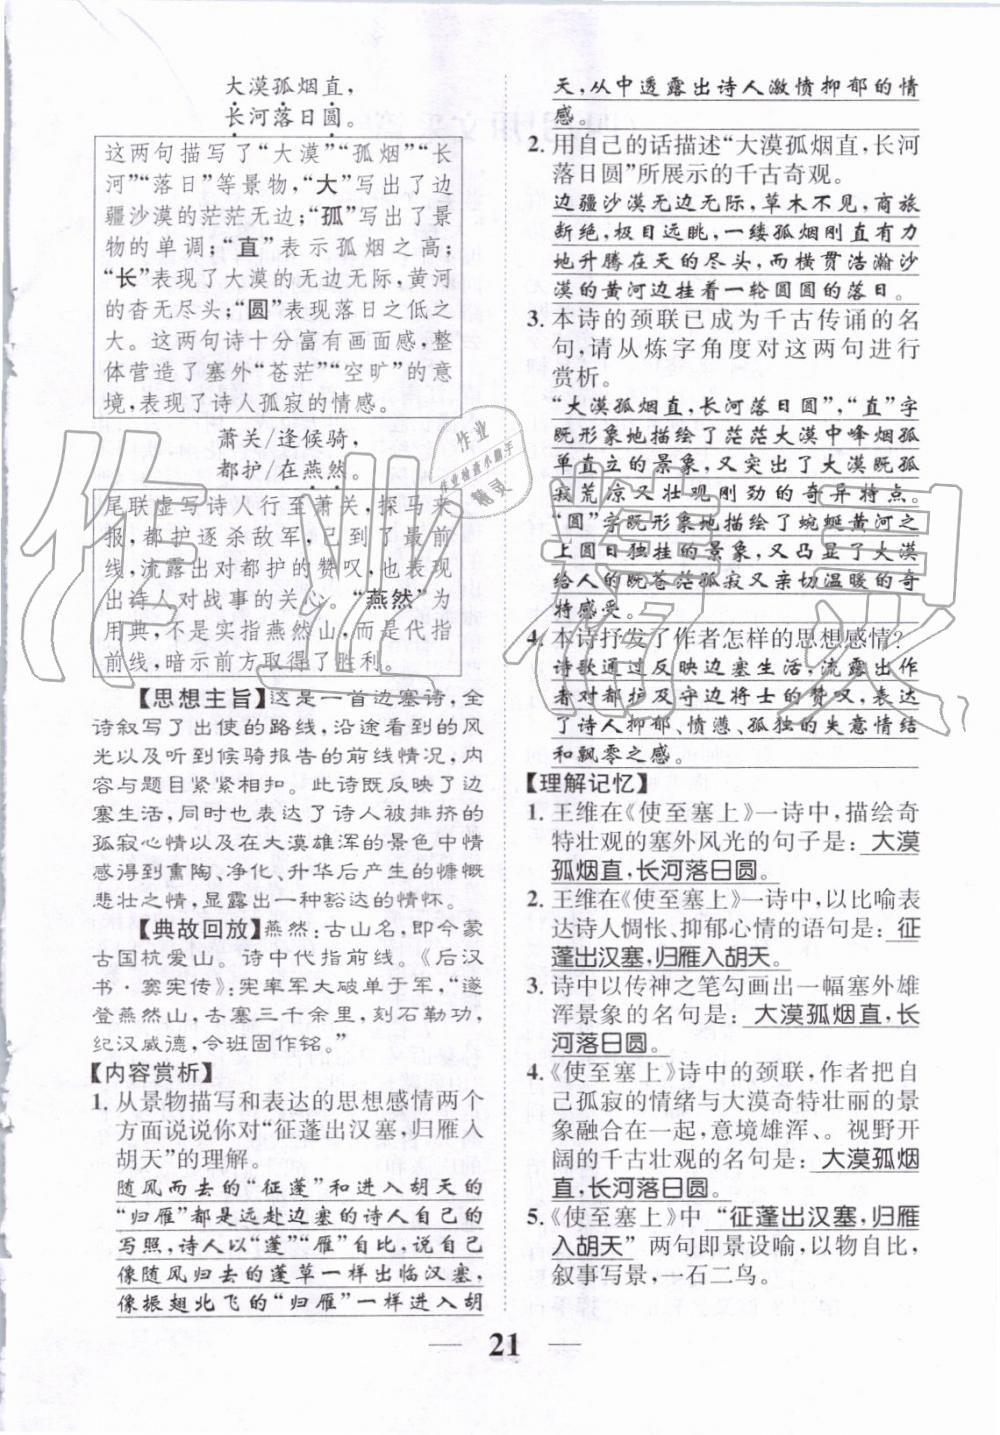 大漠孤烟直,
长河落日圆。
这两句描写了“大漠”“孤烟”“长
河”“落日”等景物,“大”写出了边
疆沙漠的茫茫无边;“孤”写出了景
物的单调;“直”表示孤烟之高;
“长”表现了大漠的无边无际,黄河
的杳无尽头;“圆”表现落日之低之
大。这两句诗十分富有画面感,整
体营造了塞外“苍茫”“空旷”的意
境,表现了诗人孤寂的情感。
萧关/逢候骑,
都护/在燕然。
尾联虚写诗人行至萧关,探马来
报,都护逐杀敌军,已到了最前
线,流露出对都护的赞叹,也表现
出诗人对战事的关心。“燕然”为
用典,不是实指燕然山,而是代指
前线,暗示前方取得了胜利。
【思想主旨】这是一首边塞诗,全
诗叙写了出使的路线,沿途看到的风
光以及听到候骑报告的前线情况,内
容与题目紧紧相扣。此诗既反映了边
塞生活,同时也表达了诗人被排挤的
孤寂心情以及在大漠雄浑的景色中情
感得到熏陶、净化、升华后产生的慷慨
悲壮之情,显露出一种豁达的情怀。
【典故回放】燕然:古山名,即今蒙
古国杭爱山。诗中代指前线。《后汉
书·窦宪传》:宪率军大破单于军,“遂
登燕然山,去塞三千余里,刻石勒功,
纪汉威德,令班固作铭。”
【内容赏析】
1. 从景物描写和表达的思想感情两个
方面说说你对“征蓬出汉塞,归雁入
胡天”的理解。
随风而去的“征蓬”和进入胡天的
“归雁”都是远赴边塞的诗人自己的
写照,诗人以“蓬”“雁”自比,说自己
像随风归去的蓬草一样出临汉塞,
像振翅北飞的“归雁”一样进入胡
天,从中透露出诗人激愤抑郁的情
感。
2. 用自己的话描述“大漠孤烟直,长河
落日圆”所展示的千古奇观。
边疆沙漠无边无际,草木不见,商旅
断绝,极目远眺,一缕孤烟刚直有力
地升腾在天的尽头,而横贯浩瀚沙
漠的黄河边挂着一轮圆圆的落日。
3. 本诗的颈联已成为千古传诵的名
句,请从炼字角度对这两句进行
赏析。
“大漠孤烟直,长河落日圆”,“直”字
既形象地描绘了茫茫大漠中烽烟孤
单直立的景象,又突出了大漠既孤
寂荒凉又壮观刚劲的奇异特点。
“圆”字既形象地描绘了蜿蜒黄河之
上圆日独挂的景象,又凸显了大漠
给人的既苍茫孤寂又亲切温暖的奇
特感受。
4. 本诗抒发了作者怎样的思想感情?
诗歌通过反映边塞生活,流露出作
者对都护及守边将士的赞叹,表达
了诗人抑郁、愤懑、孤独的失意情结
和飘零之感。
【理解记忆】
1. 王维在《使至塞上》一诗中,描绘奇
特壮观的塞外风光的句子是:大漠
孤烟直,长河落日圆。
2. 王维在《使至塞上》一诗中,以比喻表
达诗人惆怅、抑郁心情的语句是:征
蓬出汉塞,归雁入胡天。
3. 诗中以传神之笔勾画出一幅塞外雄
浑景象的名句是:大漠孤烟直,长
河落日圆。
4. 《使至塞上》诗中的颈联,作者把自
己孤寂的情绪与大漠奇特壮丽的景
象融合在一起,意境雄浑、。视野开
阔的千古壮观的名句是:大漠孤烟
直,长河落日圆。
5. 《使至塞上》中“征蓬出汉塞,归雁
入胡天”两句即景设喻,以物自比,
叙事写景,一石二鸟。
21